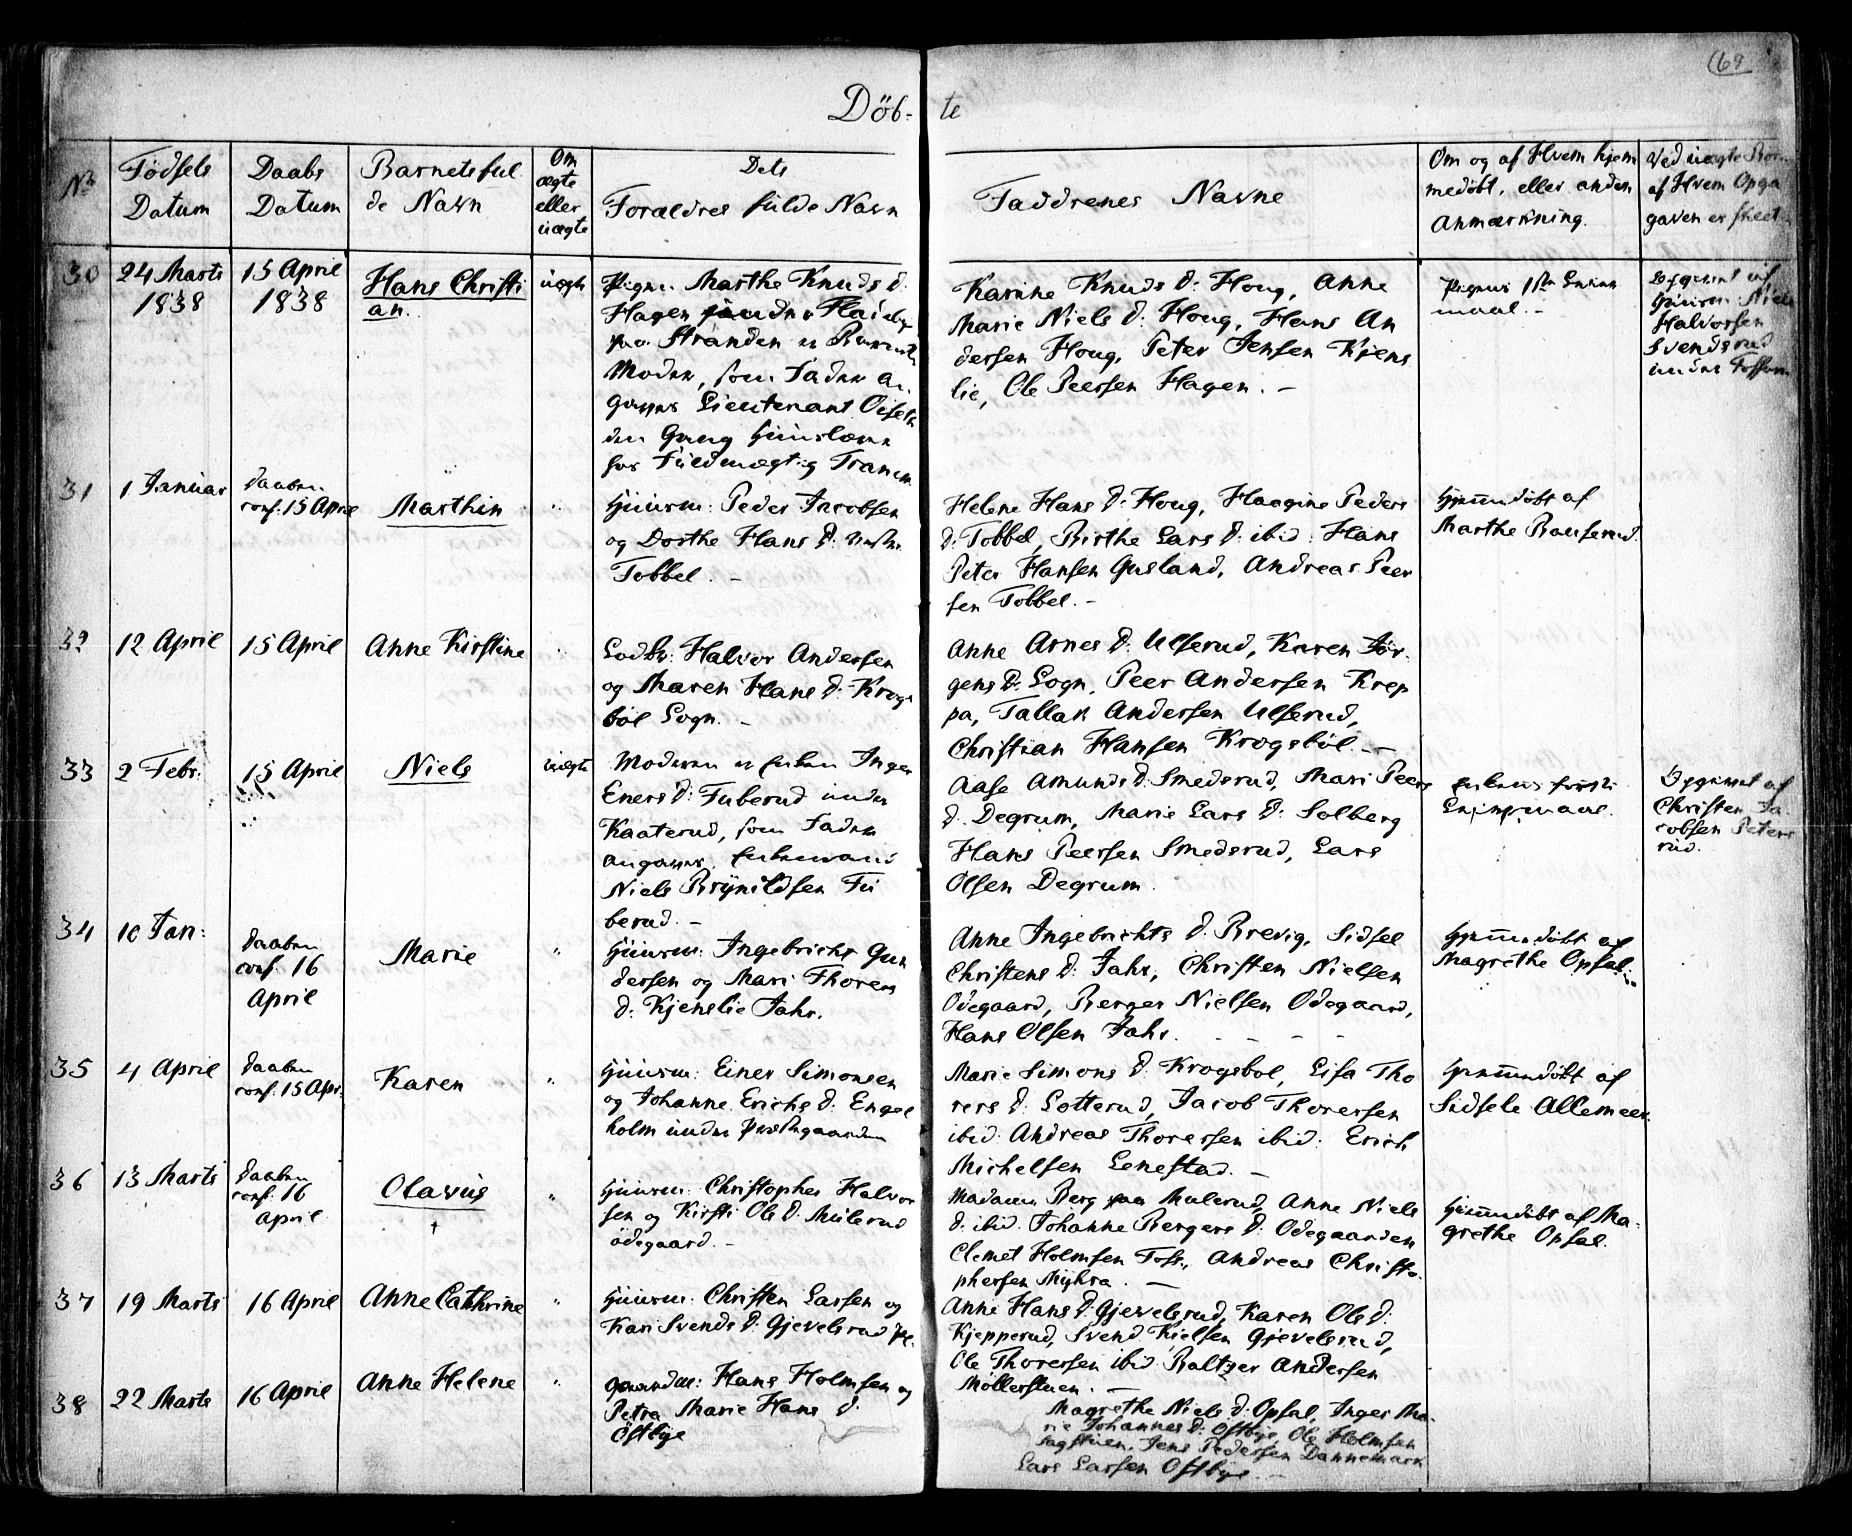 69
Döb- te
No
Födsels Datum
Daabs Datum
Barnets ful
de Navn
Om
ægte
eller
uægte
Dets
Forældres fulde Navn
Faddrenes Navne
Om og af Hvem hjem
medöbt, eller anden
Anmærkning.
Ved uægte Börn
af Hvem Opga
gaven er skeet.
30
24 Marts
1838
15 April
1838
Hans Christi
an.
uægte
Pigen Marthe Knuds d:
Hagen under Fladeby
paa Stranden er Barnets
Moder, som Fader an
gaves Lieutenant
den Gang Huuslærer
hos Fuldmægtig
Karine Knuds d: Houg, Anne
Marie Niels d: Houg, Hans An
dersen Houg, Peter Jensen Kjens
lie, Ole Peersen Hagen. -
Pigens 1ste Leier
maal. -
Opgivet af
Huusm: Niels
Halvorsen
Svendsrud
under Fossum
31
1 Januar
Daaben
conf. 15 April
Marthin
"
Huusm: Peder Jacobsen
og Dorthe Hans d: under
Tobbel. -
Helene Hans d: Houg, Haagine Peders
d: Tobbel, Birthe Lars d: ibid: Hans
Peter Hansen Gusland, Andreas Peer
sen Tobbel. -
Hjemmedöbt af
Marthe Bauserud.
32
12 April
15 April
Anne Kirstine
"
Halvor Andersen
og Maren Hans d: Krogs
böl Sogn. -
Anne Arnes d: Ulserud, Karen Jör-
gens d: Sogn, Peer Andersen Krep
pa, Tallak Andersen Ulserud,
Christian Hansen Krogsböl. -
33
2 Febr:
15 April
Niels
uægte
Moderen er Enken Inger
Eners d: Fuberud under
Kaaterud, som Fader
angaves, Enkemand
Niels Brynildsen Fu
berud. -
Aase Amunds d: Smedsrud, Mari Peers
d. Degrum, Marie Lars d: Solberg
Hans Peersen Smedsrud, Lars
Olsen Degrum.
Enkens förste
Leiermaal.
Opgivet af
Christen Ja
cobsen Peters
rud.
34
10 Jan:
Daaben
conf. 16
April
Marie
"
Huusm: Ingebricht Gun
dersen og Mari Thorers
d: Kjenslie Jahr.
Anne Ingebrichts d: Brevig, Sidsel
Christens d: Jahr, Christen Nielsen
Odegaard, Berger Nielsen Odegaard,
Hans Olsen Jahr. - - - -
Hjemmedöbt af
Magrethe Opsal.
35
4 April
Daaben
conf. 15 Apr.
Karen
"
Huusm: Einer Simonsen
og Johanne Erichs d: Engel
holm under Præstegaarden
Marie Simons d: Krogsbol, Lisa Tho
rers d: Sotterud, Jacob Thorersen
ibid: Andreas Thorersen ibid: Erich
Michelsen Lenestad. -
Hjemmedöbt af
Sidsele Allemeer.
36
13 Marts
Daaben
conf. 16
April
Olavus
†
"
Huusm: Christopher Halvor
sen og Kirsti Ols d: Mulerud
ödegaard. -
Madame Berg paa Mulerud, Anne Niels
d: ibid: Johanne Bergers d: Odegaarden
Clemet Holmsen Foss, Andreas Christo-
phersen Myhra. -
Hjemmedöbt af Ma-
grethe Opsal.
37
19 Marts
16 April
Anne Cathrine
"
Huusm: Christen Larsen og
Kari Svends d: Gjevelsrud
Anne Hans d: Gjevelsrud, Karen Ols d:
Kjepperud, Svend Kielsen Gjevelsrud,
Ole Thorersen ibid: Baltzer Andersen
Möllerstuen. -
38
22 Marts
16 April
Anne Helene
"
Gaardm: Hans Holmsen og
Petra Marie Hans d:
Östbye
Magrethe Niels d: Opsal, Inger Ma-
rie Johannes d: Östbye, Ole Holmsen
Sagstuen, Jens Pedersen Dannemark
Lars Larsen Ostbye. -